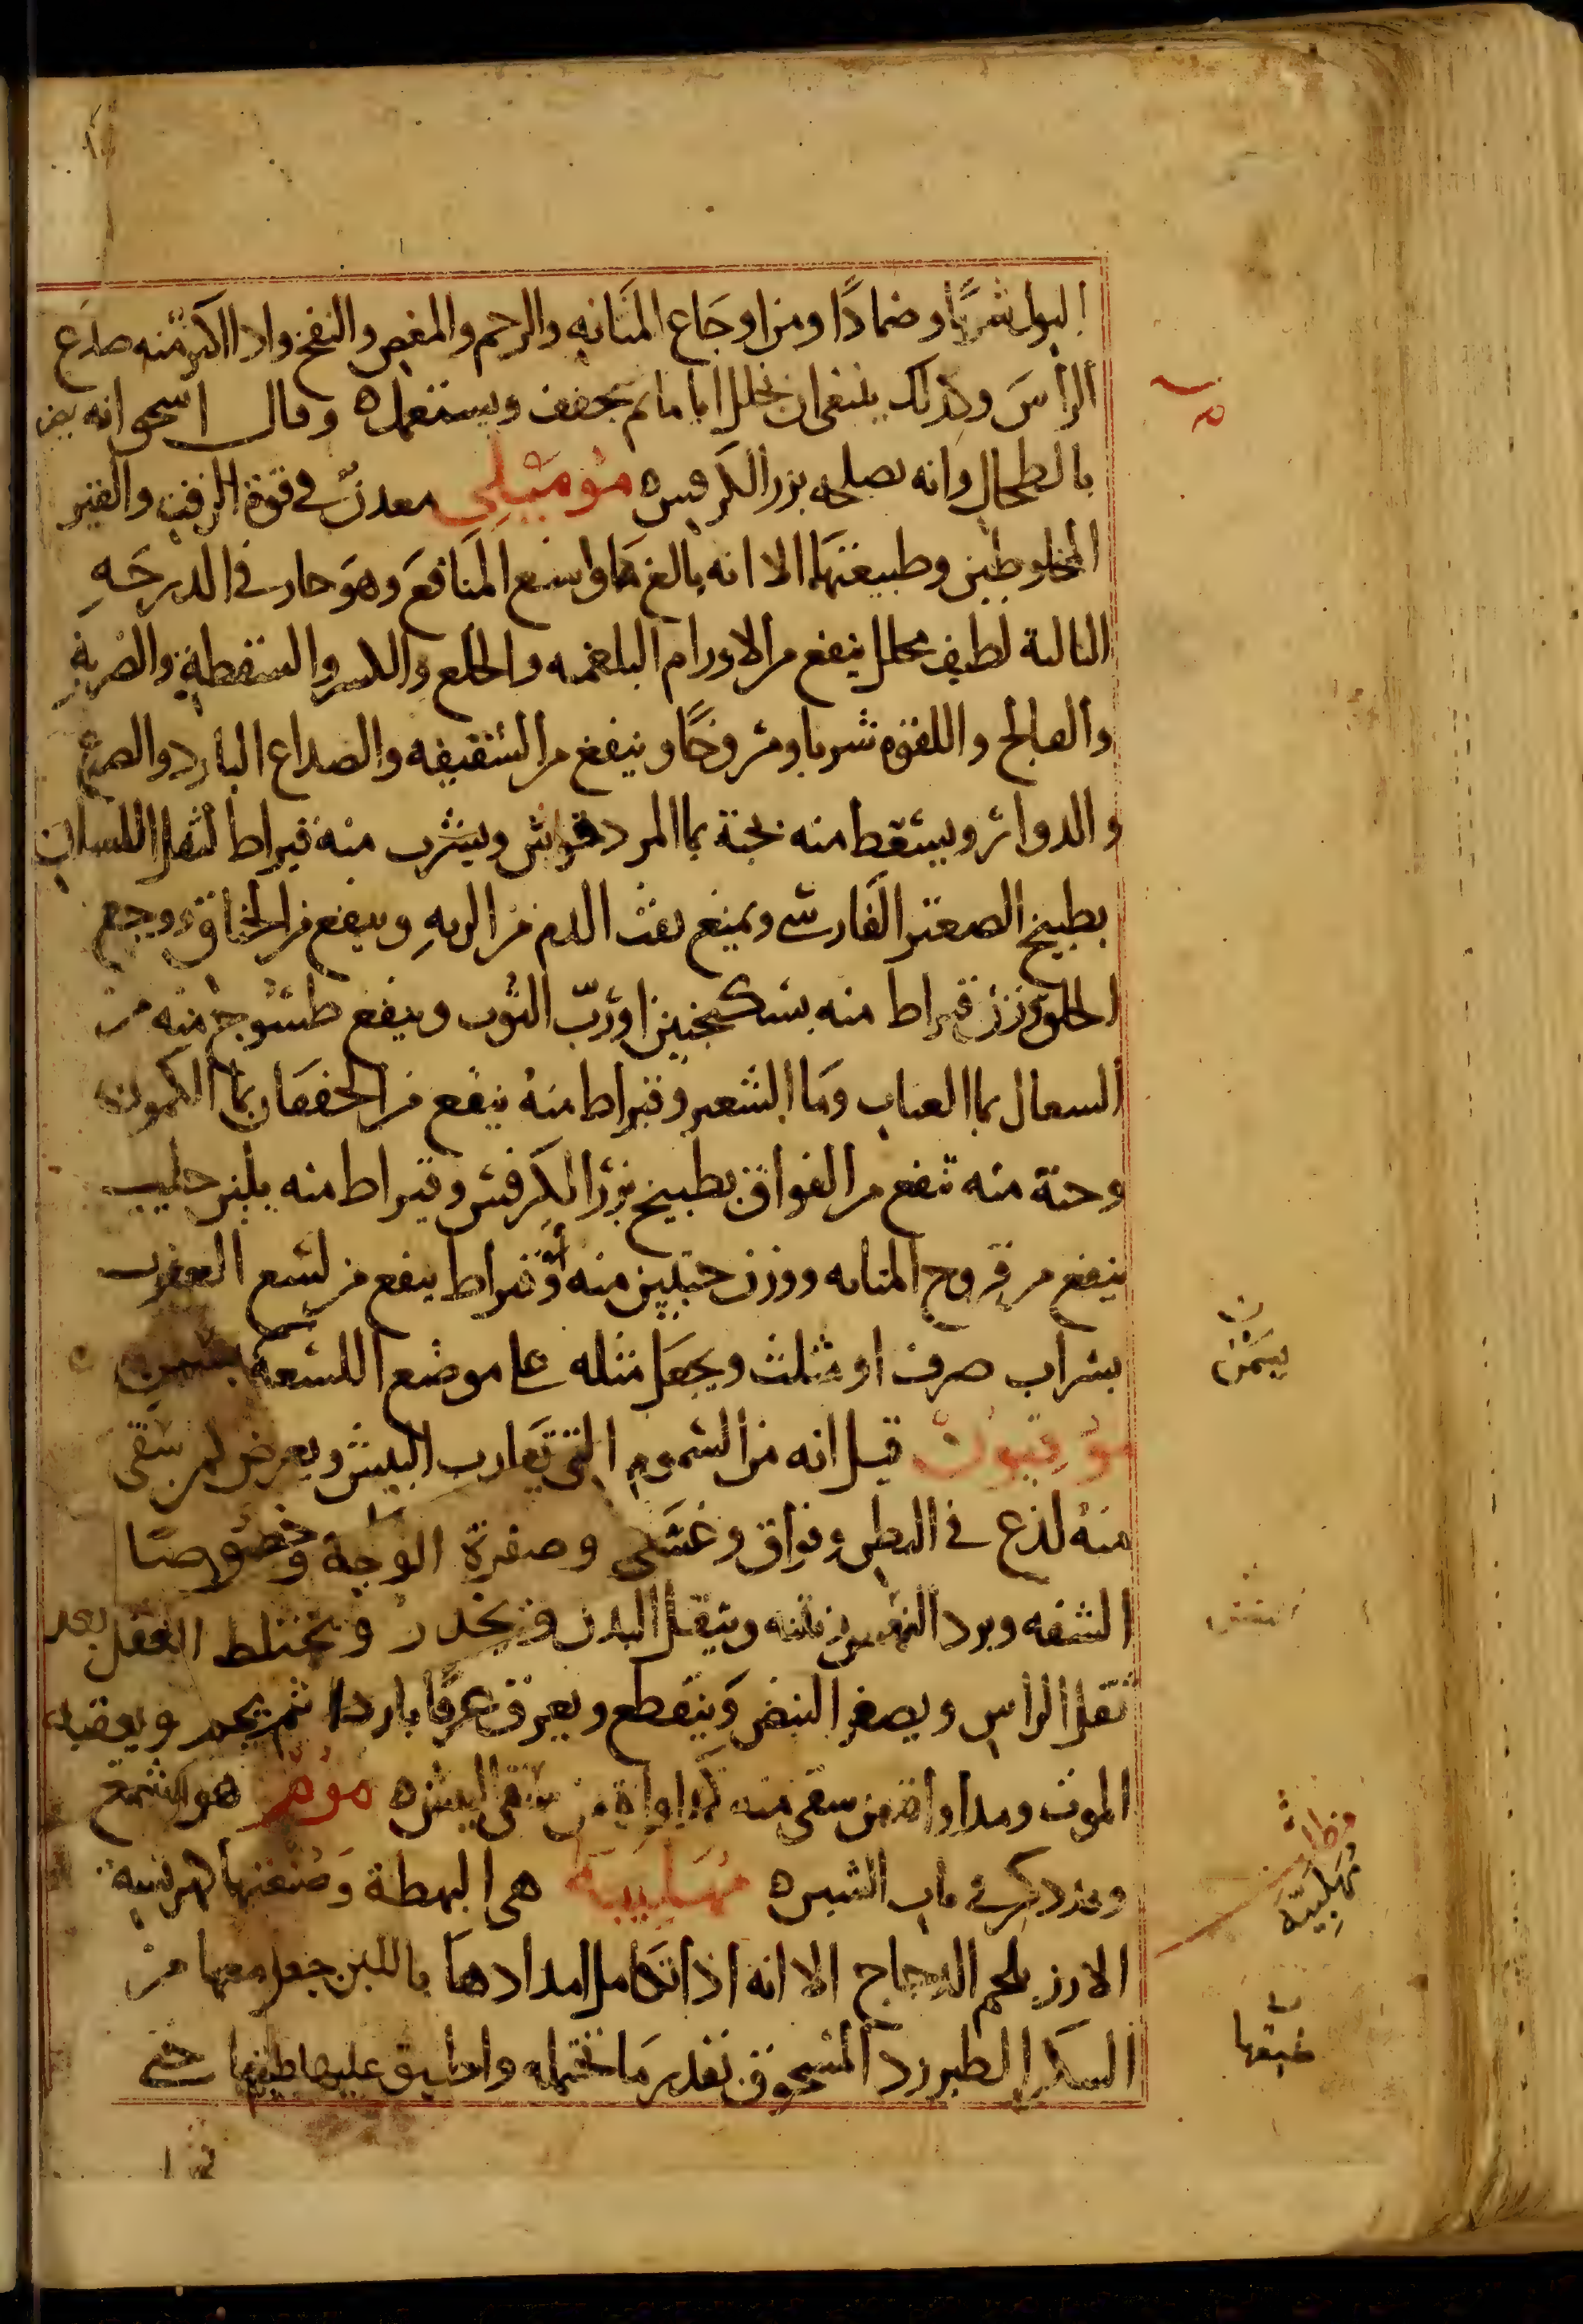 البول شربًا وضمادًا ومن اوجاع المثانه والرحم والمغص والنفخ واذا اكثر منه صدع
الرأس وكذلك ينبغى ان يخلل اياما ثم يجفف ويستعمل ه وقال اسحق انه يضر
بالطحال وانه يصلحه بزر الكرفس ه موميلى معدنى فى قوة الزفت والقير
المخلوطين وطبيعتهما الا انه بالغ واسع المنافع وهو حار فى الدرجه
الثالثة لطيف محلل ينفع من الاورام البلغميه والخلع والكسر والسقطة والضربة
والفالج واللقوه شربا ومروخًا وينفع من الشقيقه والصداع البارد والصرع
والدوار ويسقط منه بحبة بما المردقوش ويشرب منه قيراط لثقل اللسان
بطبيخ الصعتر الفارسى ويمنع نفث الدم من الريه وينفع من الخناق ووجع
الحلق وزن قيراط منه بسكنجبين او ربّ التوت وينفع طسوج منه من
السعال بما العناب وما الشعير وقيراط منه ينفع من الخفقان بما الكمون
وحبة منه تنفع من الفواق بطبيخ بزر الكرفس وقيراط منه بلبن حليب
ينفع من قروح المثانه ووزن حبتين منه او قيراط ينفع من لسع العقرب
بشراب صرف او مثلث ويجعل مثله على موضع اللسعة بسمن
موفيون قيل انه من السموم التى تقارب البيش ويعرض لمن سقى
منه لذع فى البطن وفواق وغشى وصفرة الوجه وخصوصا
الشفه وبرد النفس ونتنه ويثقل البدن ويخدر ويختلط العقل بعد
ثقل الراس ويصغر النبض وينقطع ويعرق عرقا باردا ثم يحمر ويعقبه
الموت ومداواة من سقى منه كمداواة من سقى البيش ه موم هو الشمع
وقد ذكر فى باب الشين ه مهلبية هى البهطة وصنعتها كهريسة
الارز بلحم الدجاج الا انه اذا تكامل امدادها باللبن جعل معها من
السكر الطبرزد المسحوق بقدر ما تحتمله واطبق عليها طبقها حتى
بسمن
مهلبيّة
طبقها